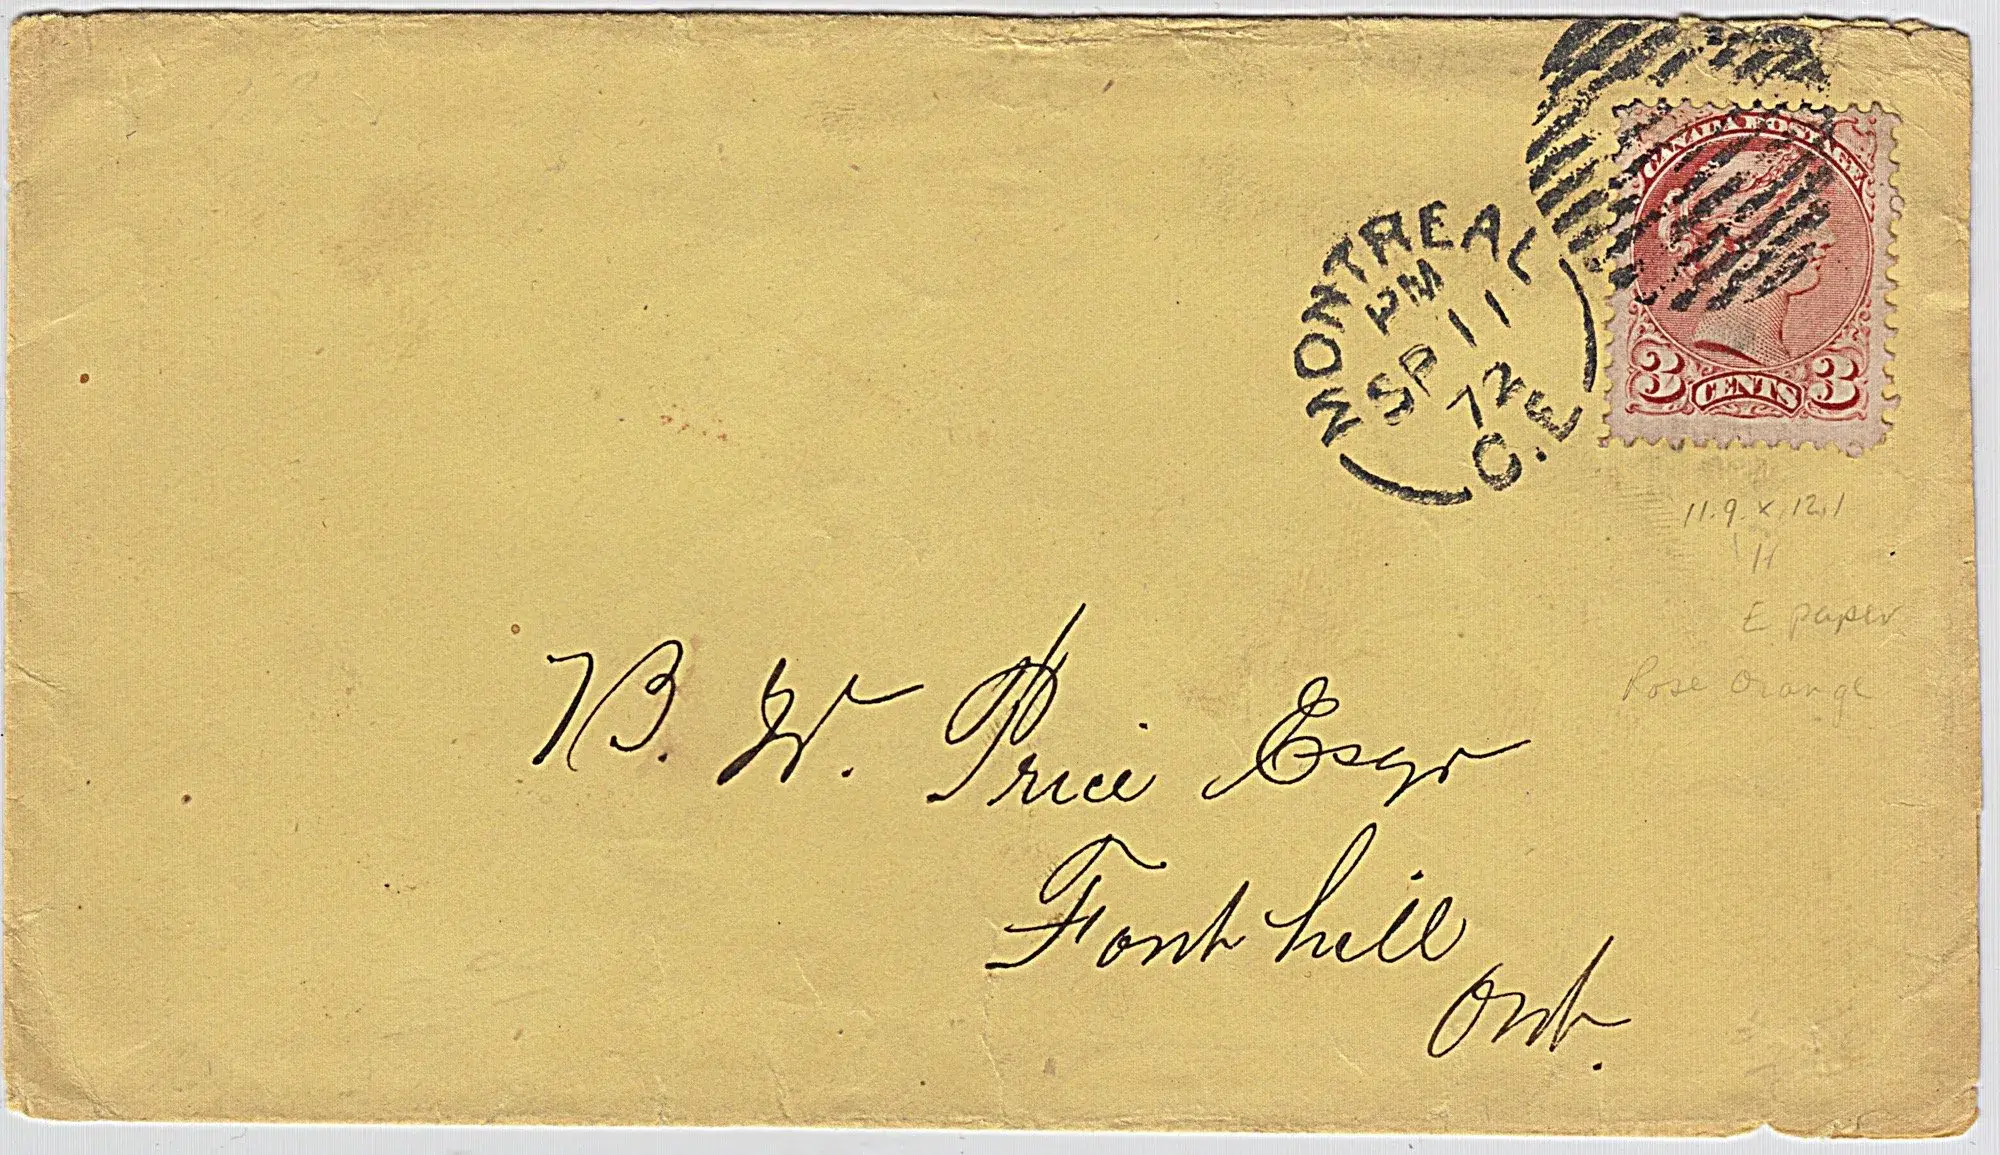 CANADA POSTAGE
3 CENTS 3
MONTREAL
PM
SP 11
72
C.E.
11.9 x 12.1
H
E paper
Rose Orange
B. W. Price Esqr
Fonthill
Ont.